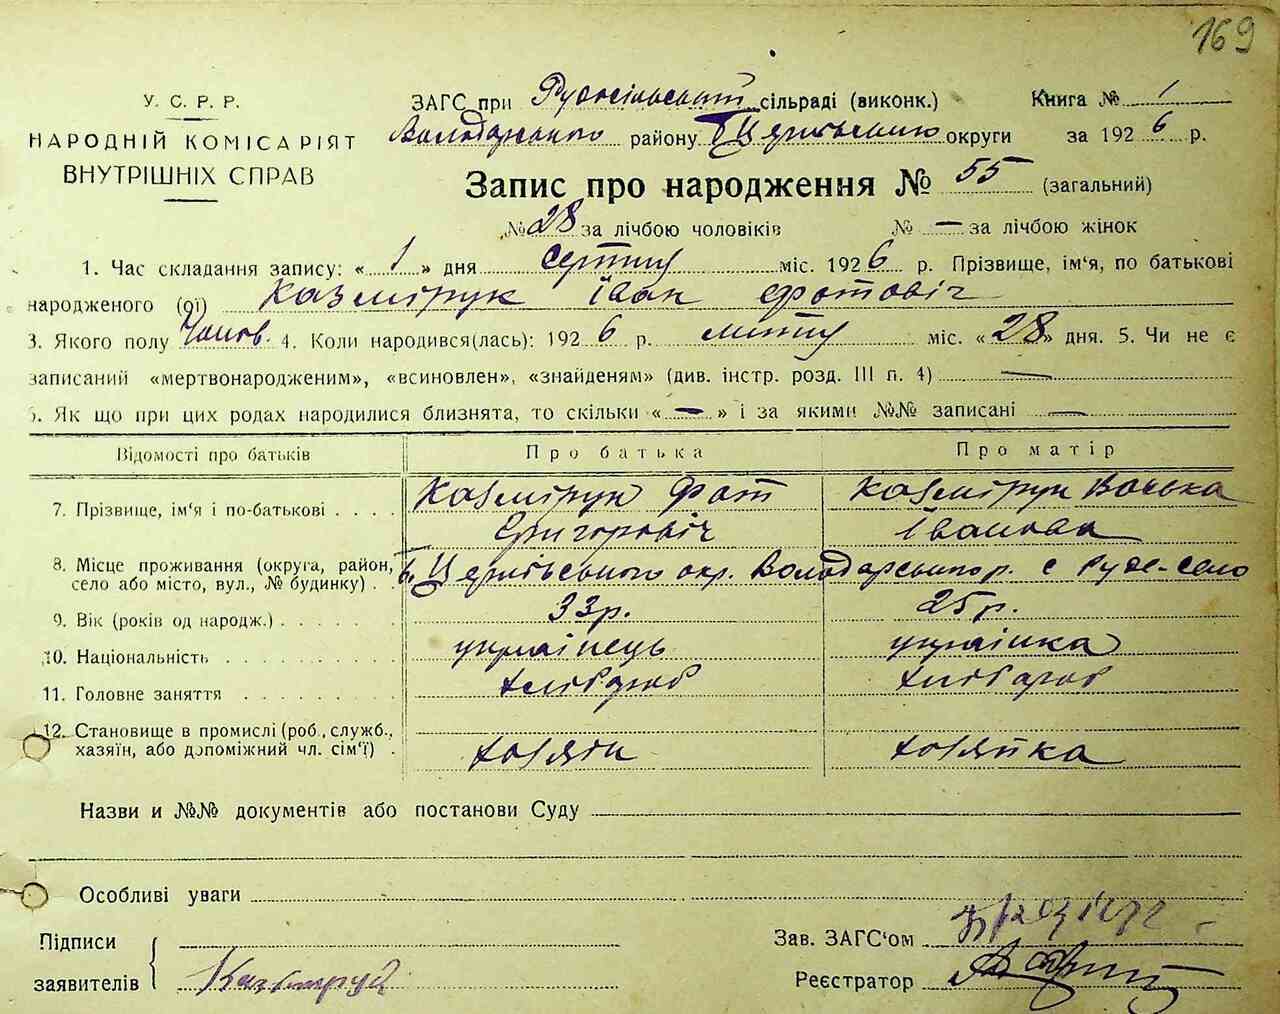 169
У. С. Р. Р.
НАРОДНІЙ КОМІСАРІЯТ
ВНУТРІШНІХ СПРАВ
ЗАГС при Рудосільський сільраді (виконк.) Книга № 1
Володарського району Б Церківською округи за 1926 р.
Запис про народження № 55 (загальний)
№ 28 за лічбою чоловіків № — за лічбою жінок
1. Час складання запису: « 1 » дня серпню міс. 1926 р. Прізвище, ім'я, по батькові
народженого (ої) Казмірук Іван Фотовіч
3. Якого полу Чолов. 4. Коли народився(лась): 1926 р. липню міс. « 28 » дня. 5. Чи не є
записаний «мертвонародженим», «всиновлен», «знайденям» (див. інстр. розд. III п. 4) —
6. Як що при цих родах народилися близнята, то скільки « — » і за якими №№ записані —
Відомості про батьків Про батька Про матір
7. Прізвище, ім'я і по-батькові Казмірук Фот Казмірук
Григоровіч Іванова
8. Місце проживання (округа, район,
село або місто, вул., № будинку) Б. Церківського окр. Володарського р. с Руде-село
9. Вік (років од народж.) 33р. 25р.
10. Національність українець українка
11. Головне заняття хлібороб хлібороб
12. Становище в промислі (роб., служб.,
хазяїн, або допоміжний чл. сім'ї) хозяїн хозяйка
Назви и №№ документів або постанови Суду
Особливі уваги
Підписи
заявителів
Зав. ЗАГС'ом
Реєстратор